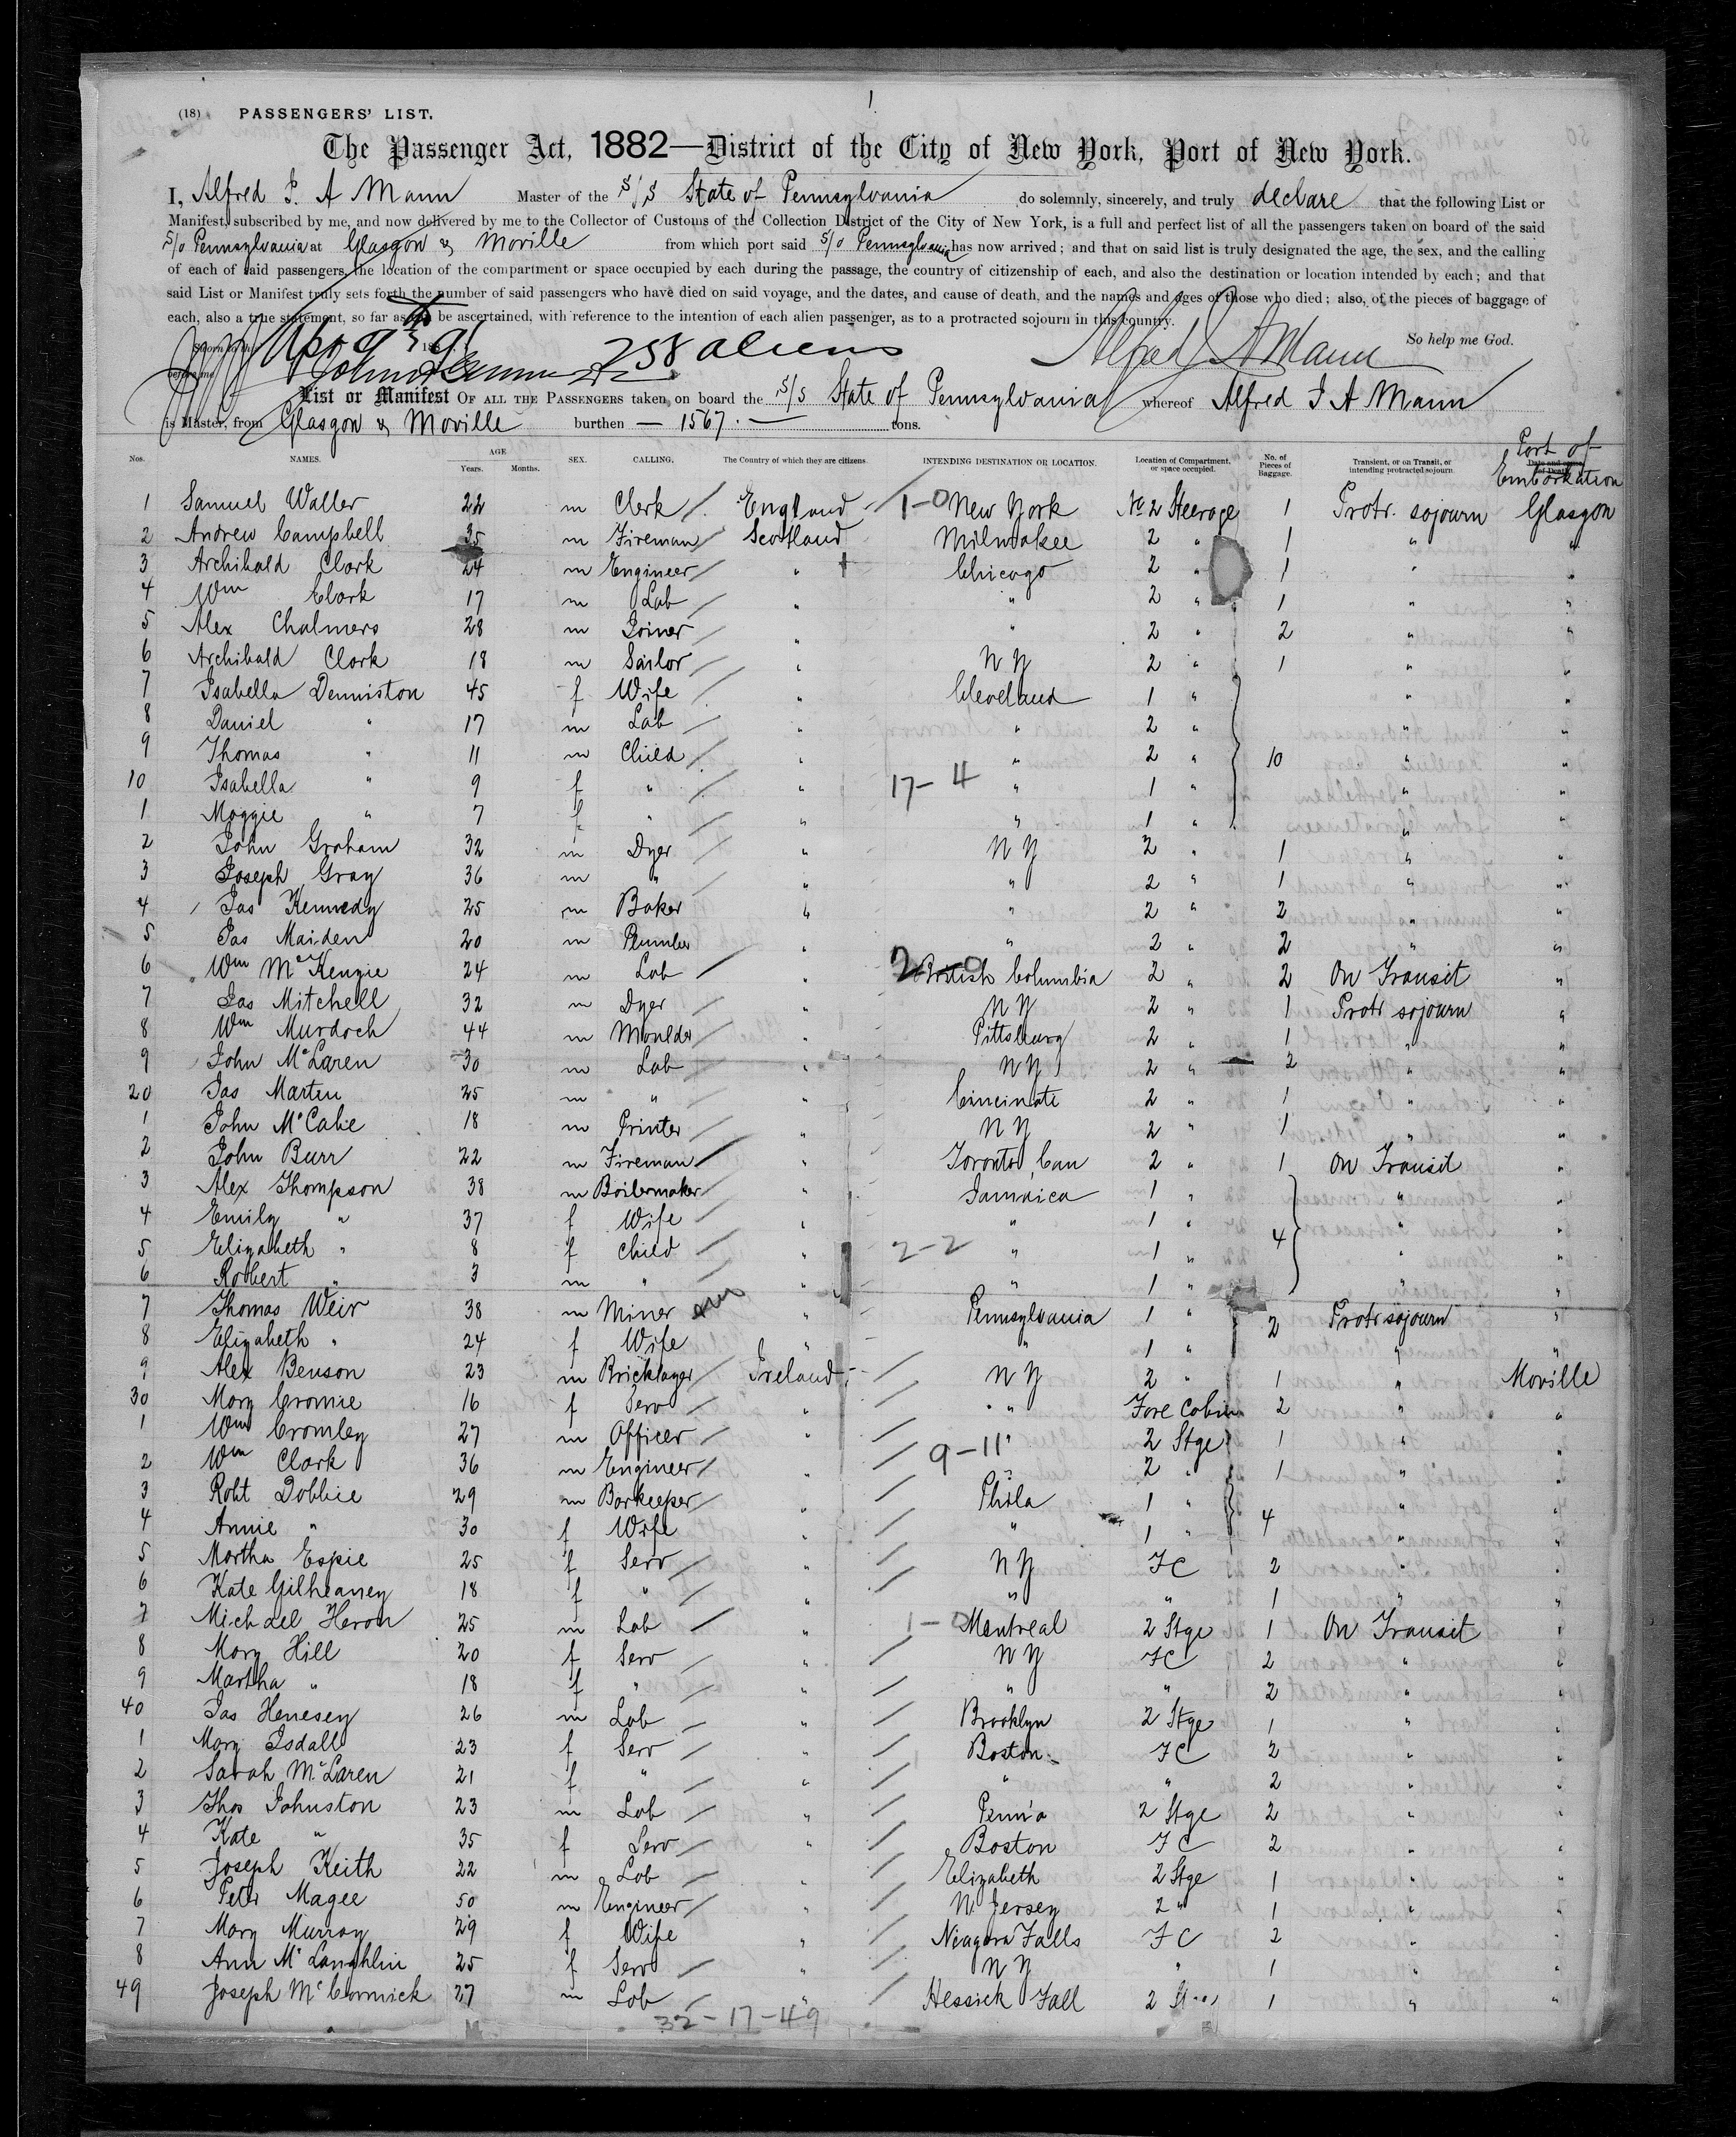 1
(18) PASSENGERS' LIST.
The Passenger Act, 1882—District of the City of New York, Port of New York.
I, Alfred J. A Mann Master of the S/S State of Pennsylvania do solemnly, sincerely, and truly declare that the following List or
Manifest, subscribed by me, and now delivered by me to the Collector of Customs of the Collection District of the City of New York, is a full and perfect list of all the passengers taken on board of the said
S/o Pennsylvania at Glasgow & Moville from which port said S/o Pennsylvania has now arrived; and that on said list is truly designated the age, the sex, and the calling
of each of said passengers, the location of the compartment or space occupied by each during the passage, the country of citizenship of each, and also the destination or location intended by each; and that
said List or Manifest truly sets forth the number of said passengers who have died on said voyage, and the dates, and cause of death, and the names and ages of those who died; also, of the pieces of baggage of
each, also a true statement, so far as can be ascertained, with reference to the intention of each alien passenger, as to a protracted sojourn in this country.
Sworn to th 9th 91 258 aliens Alfred J A Mann So help me God.
before me
List or Manifest OF ALL THE PASSENGERS taken on board the S/S State of Pennsylvania whereof Alfred J A Mann
is Master, from Glasgow & Moville burthen — 1567. — tons.
Nos. NAMES. AGE Years. Months. SEX. CALLING. The Country of which they are citizens. INTENDING DESTINATION OR LOCATION. Location of Compartment, or space occupied. No. of Pieces of Baggage. Transient, or on Transit, or intending protracted sojourn. Date and cause of Death. Port of Embarkation
1 Samuel Waller 22 m Clerk / England / 1-0 New York No 2 Steerage 1 Protr. sojourn Glasgow
2 Andrew Campbell 35 m Fireman / Scotland Milwakee 2 " 1 " "
3 Archibald Clark 24 m Engineer / " + Chicago 2 " 1 " "
4 Wm Clark 17 m Lab / " " 2 " 1 " "
5 Alex Chalmers 28 m Joiner / " " 2 " 2 " "
6 Archibald Clark 18 m Sailor / " N Y 2 " 1 " "
7 Isabella Denniston 45 f Wife / " Cleveland 1 " " "
8 Daniel " 17 m Lab / " " 2 " " "
9 Thomas " 11 m Child / " " 2 " 10 " "
10 Isabella " 9 f " / " 17-4 " 1 " " "
1 Maggie " 7 f " / " " 1 " " "
2 John Graham 32 m Dyer / " N Y 2 " 1 " "
3 Joseph Gray 36 m " / " " 2 " 1 " "
4 / Jas Kennedy 25 m Baker / " " 2 " 2 " "
5 Jas Maiden 20 m Plumber " " 2 " 2 " "
6 Wm McKenzie 24 m Lab / " 2-0 British Columbia 2 " 2 On Transit "
7 Jas Mitchell 32 m Dyer / " N Y 2 " 1 Protr sojourn "
8 Wm Murdoch 44 m Moulder / " Pittsburg 2 " 1 " "
9 John McLaren 30 m Lab / " N Y 2 " 2 " "
20 Jas Martin 25 m " / " Cincinate 2 " 1 " "
1 John McCabe 18 m Printer / " N Y 2 " 1 " "
2 John Burr 22 m Fireman / " Toronto, Can 2 " 1 On Transit "
3 Alex Thompson 38 m Boilermaker / " Jamaica 1 " " "
4 Emily " 37 f Wife / " " 1 " " "
5 Elizabeth " 8 f Child / " 2-2 " 1 " 4 " "
6 Robert " 3 m " / " " 1 " " "
7 Thomas Weir 38 m Miner " Pennsylvania 1 " 2 Protr sojourn "
8 Elizabeth " 24 f Wife " " 1 " " "
9 Alex Benson 23 m Bricklayer / Ireland / N Y 2 " 1 " Moville
30 Mary Cromie 16 f Serv / " / " Fore Cabin 2 " "
1 Wm Cromley 27 m Officer / " / 9-11 " 2 Stge 1 " "
2 Wm Clark 36 m Engineer / " / " 2 " 1 " "
3 Robt Dobbie 29 m Barkeeper / " / Phila 1 " " "
4 Annie " 30 f Wife " / " 1 " 4 " "
5 Martha Espie 25 f Serv / " / N Y F C 2 " "
6 Kate Gilheaney 18 f " / " / " " 1 " "
7 Michael Heron 25 m Lab / " 1-0 Montreal 2 Stge 1 On Transit "
8 Mary Hill 20 f Serv / " / N Y F C 2 " "
9 Martha " 18 f " / " / " " 2 " "
40 Jas Henesey 26 m Lab / " / Brooklyn 2 Stge 1 " "
1 Mary Isdall 23 f Serv / " / Boston F C 2 " "
2 Sarah McLaren 21 f " / " / " " 2 " "
3 Thos Johnston 23 m Lab / " / Penn'a 2 Stge 2 " "
4 Kate " 35 f Serv / " / Boston F C 2 " "
5 Joseph Keith 22 m Lab / " / Elizabeth 2 Stge 1 " "
6 Peter Magee 50 m Engineer / " / N. Jersey 2 " 1 " "
7 Mary Murray 29 f Wife " / Niagara Falls F C 2 " "
8 Ann McLaughlin 25 f Serv / " / N Y " 1 " "
49 Joseph McCormick 27 m Lab / " / Hessick Fall 2 1 " "
32-17-49